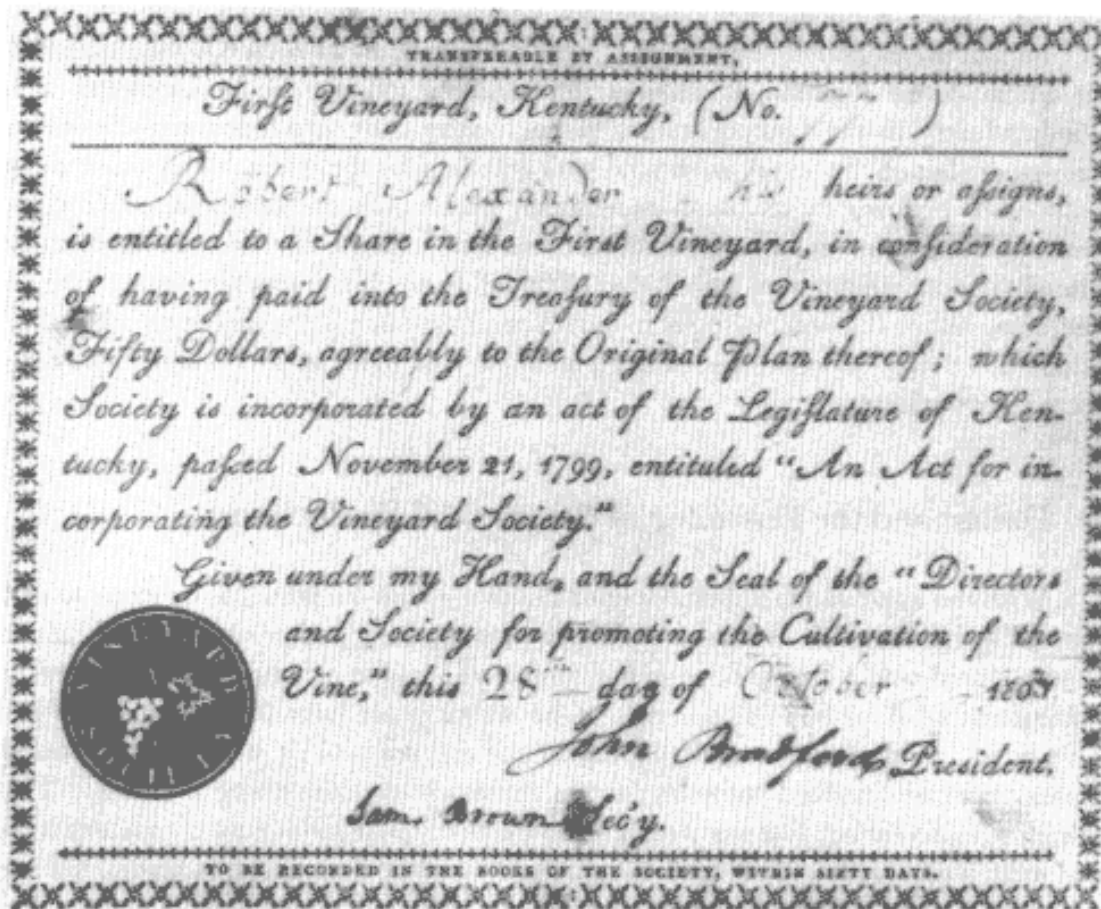 TRANSFERABLE BY ASSIGNMENT,
Firſt Vineyard, Kentucky, (No. 77)
Robert Alexander his heirs or aſsigns,
is entitled to a Share in the First Vineyard, in conſideration
of having paid into the Treaſury of the Vineyard Society,
Fifty Dollars, agreeably to the Original Plan thereof; which
Society is incorporated by an act of the Legiſlature of Ken-
tucky, paſsed November 21, 1799, entituled “An Act for in-
corporating the Vineyard Society.”
Given under my Hand, and the Seal of the “Directors
and Society for promoting the Cultivation of the
Vine,” this 28th day of October
John Bradford, President.
Sam. Brown Sec'y.
TO BE RECORDED IN THE BOOKS OF THE SOCIETY, WITHIN SIXTY DAYS.